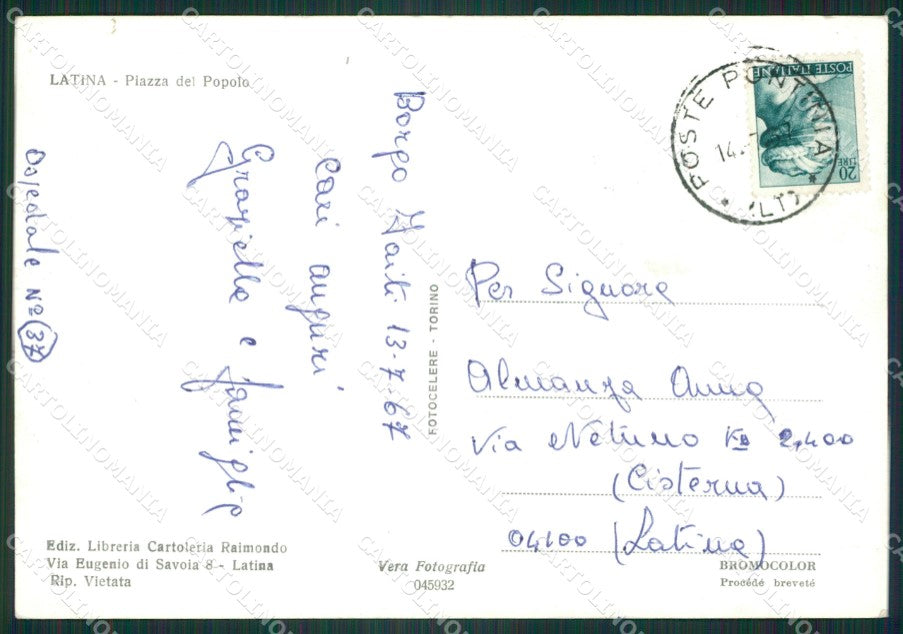 LATINA - Piazza del Popolo
Borgo Faiti 13-7-67
Cari auguri
Graziella e famiglia
Ospedale Nº (37)
POSTE ITALIANE
LIRE 20
POSTE PONTINIA
14.
(LT)
Per Signora
Almanza Anna
Via Netuno KM 2,400
(Cisterna)
04100 (Latina)
FOTOCELERE - TORINO
Ediz. Libreria Cartoleria Raimondo
Via Eugenio di Savoia 8 - Latina
Rip. Vietata
Vera Fotografia
045932
BROMOCOLOR
Procédé breveté
CARTOLINOMANIA